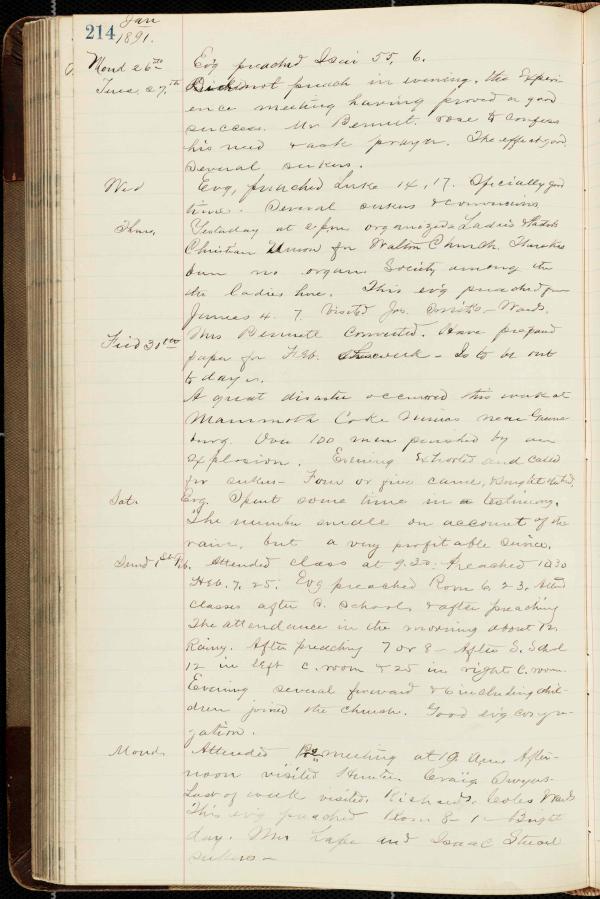 214 Jan
1891.
Mond 26th Evg preached Isai 55, 6.
Tues 27th Did not preach in evening. the Experi-
ence meeting having proved a good
success. Mr Bennet. rose & confess
his need & ask prayer. The effect good
Several seekers.
Wed Evg, preached Luke 14, 17. Specially good
time. Several seekers & conversions
Thurs, Yesterday at 2 pm organized Ladies &
Christian Union for Walton Church. There has
been no organ. Society among the
the ladies here. This evg preached from
James 4. 7. Visited Jos. Wards,
Frid 30th Mrs Bennett Converted. Have prepared
paper for Feb. this week - Is to be out
to day.
A great disaster occurred this week at
Mammoth Coke near Greens-
burg. Over 100 men perished by an
explosion. Evening Exhorted and called
for seekers - Four or five came,
Sat. Evg. Spent some time in a testimony.
The number small on account of the
rain, but a very profitable service.
Sund 1st Feb. Attended class at 9.30. Preached 10.30
Heb. 7, 25. Evg preached Rom 6, 23. Attend
classes after S. School & after preaching
The attendance in the morning about 12.
Rainy. After preaching 7 or 8 - After S. School
12 in left C. room & 25 in right C. room.
Evening several forward & 6 including chil-
dren joined the church. Good evg congre-
gation.
Mond. Attended meeting at 10 am. After-
noon visited Hunter Craig
Last of week visited, Richards. Coles Wards
This evg preached Rom 8 - 1 - Bright
day. Mrs Lape and Isaac Stuart
seekers -